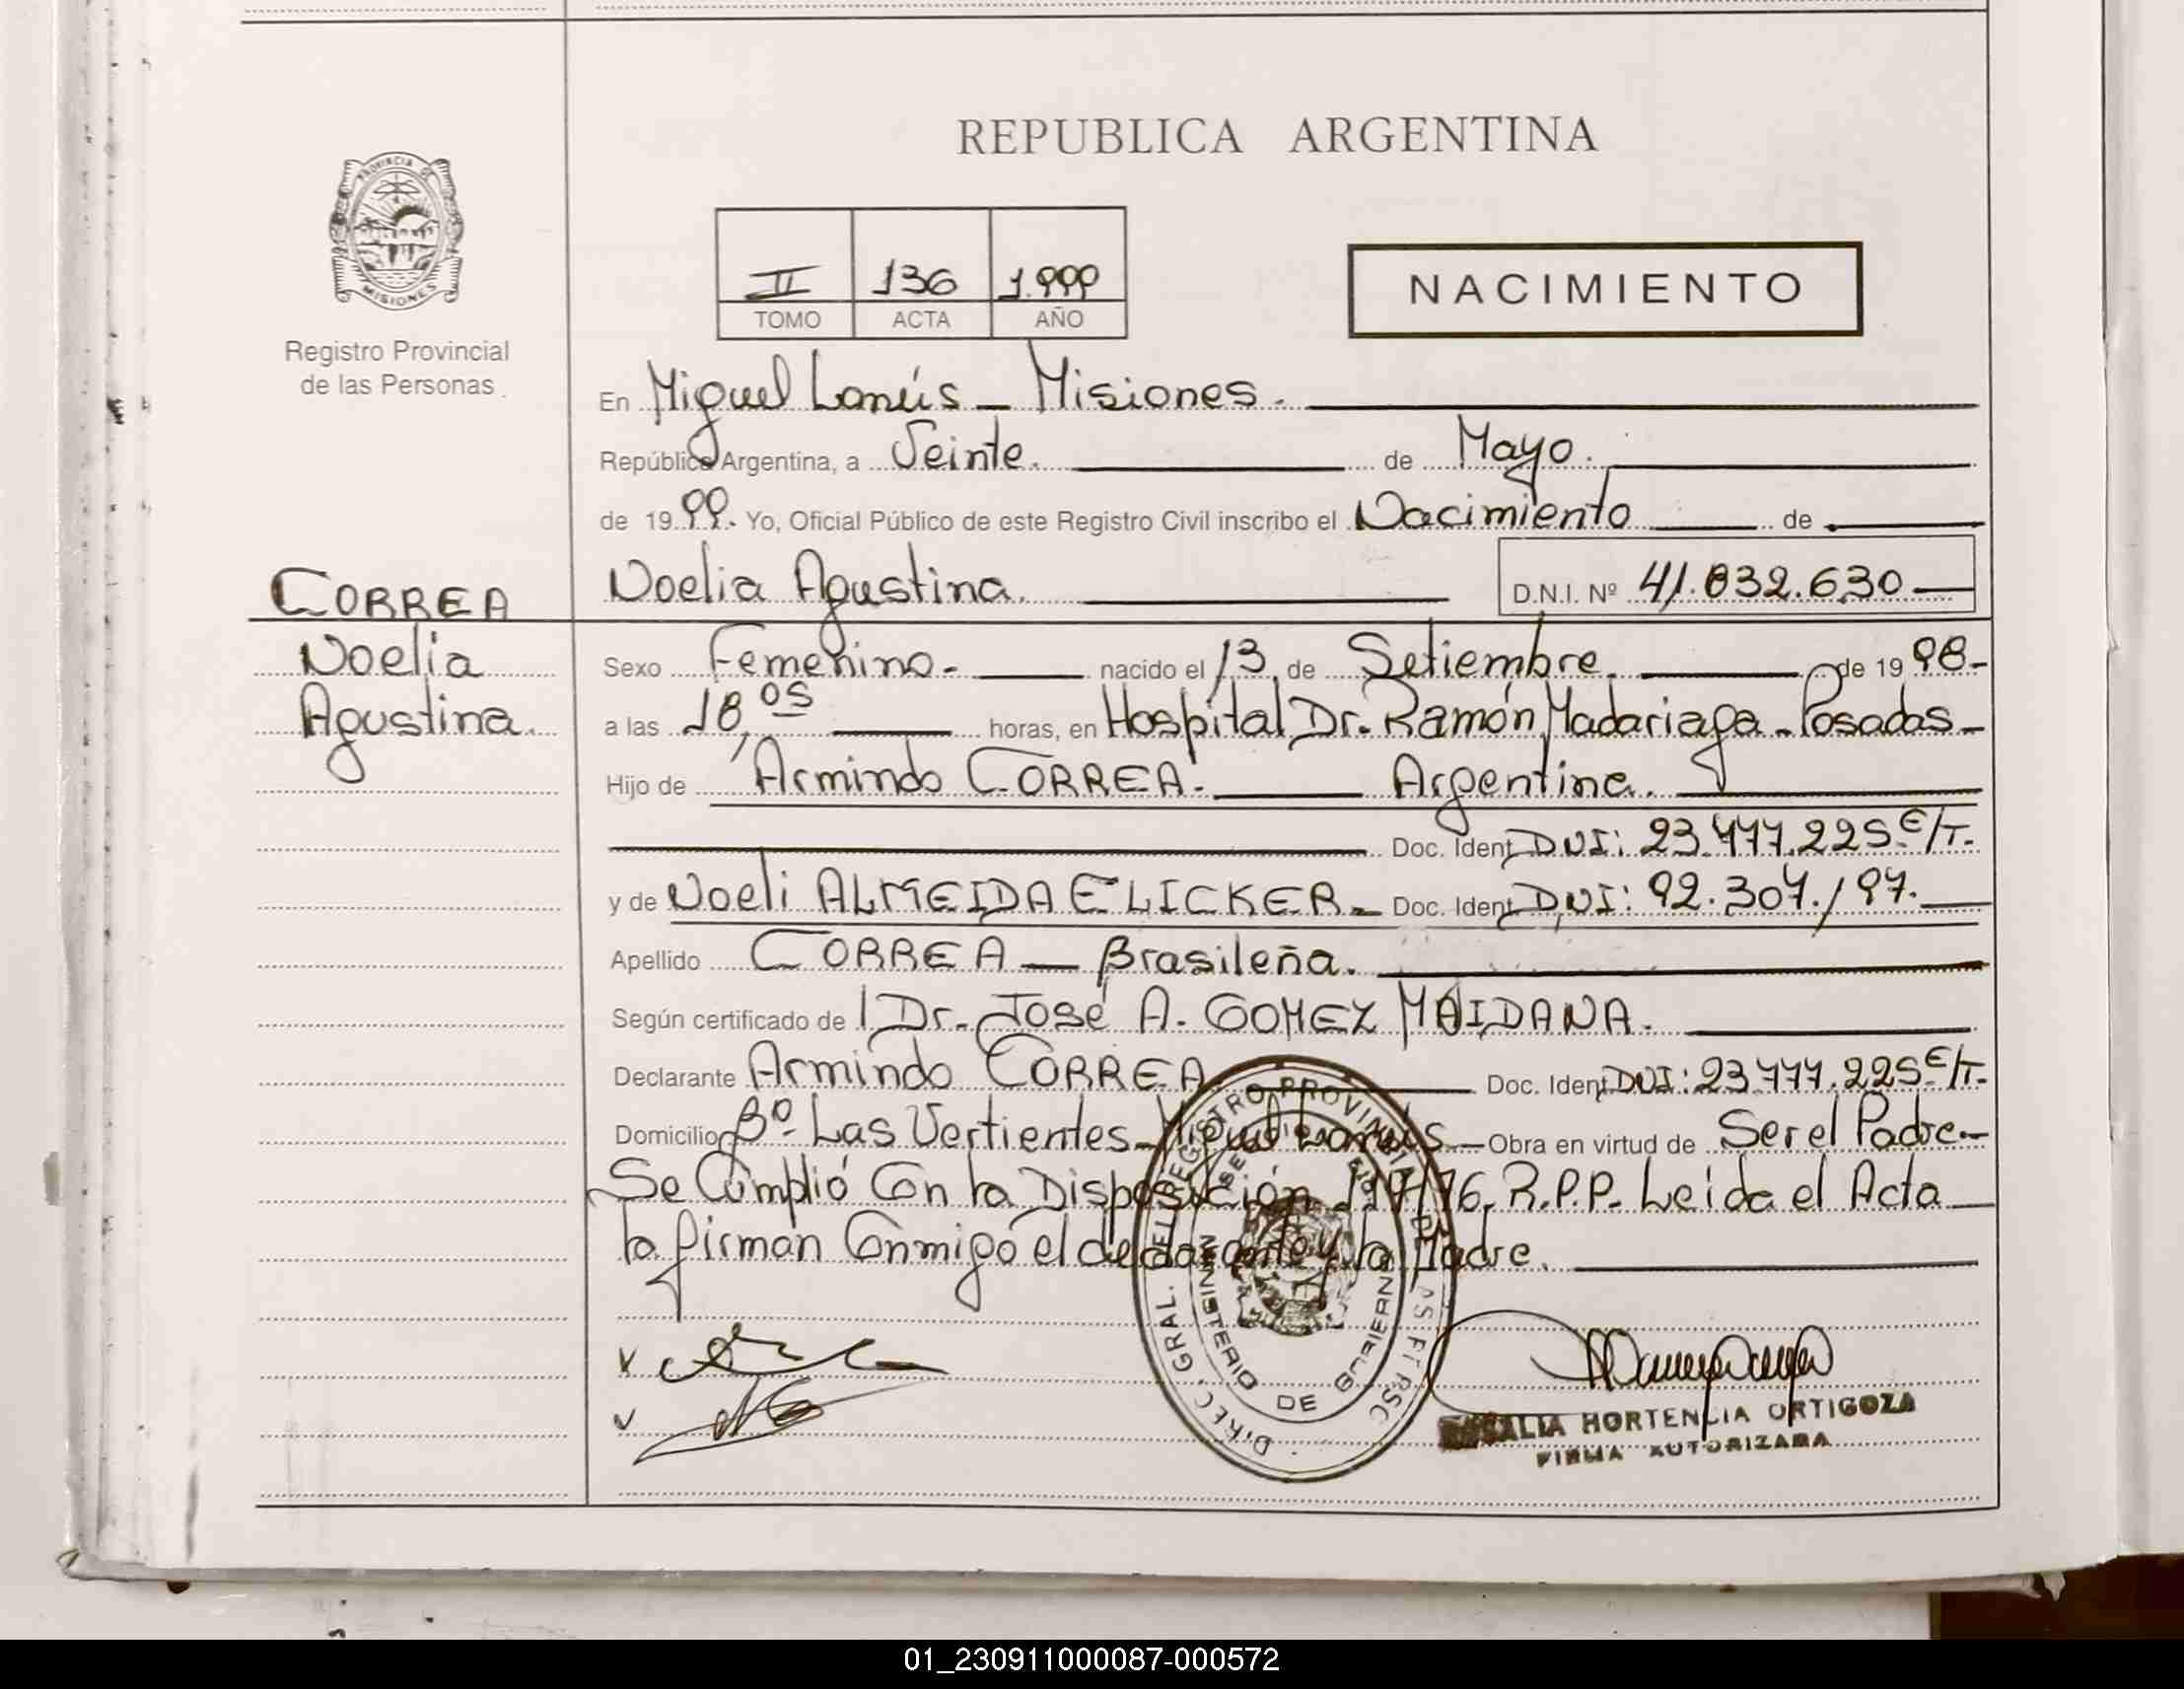 REPUBLICA ARGENTINA
PROVINCIA DE MISIONES
Registro Provincial
de las Personas
II 136 1.999
TOMO ACTA AÑO
NACIMIENTO
En Miguel Lanús - Misiones.
República Argentina, a Veinte. de Mayo.
de 1999. Yo, Oficial Público de este Registro Civil inscribo el Nacimiento de
CORREA
Noelia Agustina. D.N.I. Nº 41.832.630
Noelia
Agustina.
Sexo Femenino. nacido el 13 de Setiembre. de 1998-
a las 18,os horas, en Hospital Dr. Ramón Madariaga - Posadas-
Hijo de Armindo CORREA. Argentina.
Doc. Ident. DNI: 23.777.225 E/T.
y de Noeli ALMEIDA ELICKER - Doc. Ident. DNI: 92.307.197.
Apellido CORREA - Brasileña.
Según certificado de Dr. José A. GOMEZ MAIDANA.
Declarante Armindo CORREA. Doc. Ident. DNI: 23.777.225 E/T.
Domicilio Bº Las Vertientes - Miguel Lanús. Obra en virtud de Ser el Padre.-
Se Cumplió Con la Disposición 117/76. R.P.P. Leída el Acta
la firman Conmigo el declarante y la Madre.
DIREC. GRAL. DEL REGISTRO PROVINCIAL DE LAS PERSONAS
MINISTERIO DE GOBIERNO
HORTENCIA ORTIGOZA
FIRMA AUTORIZADA
01_230911000087-000572